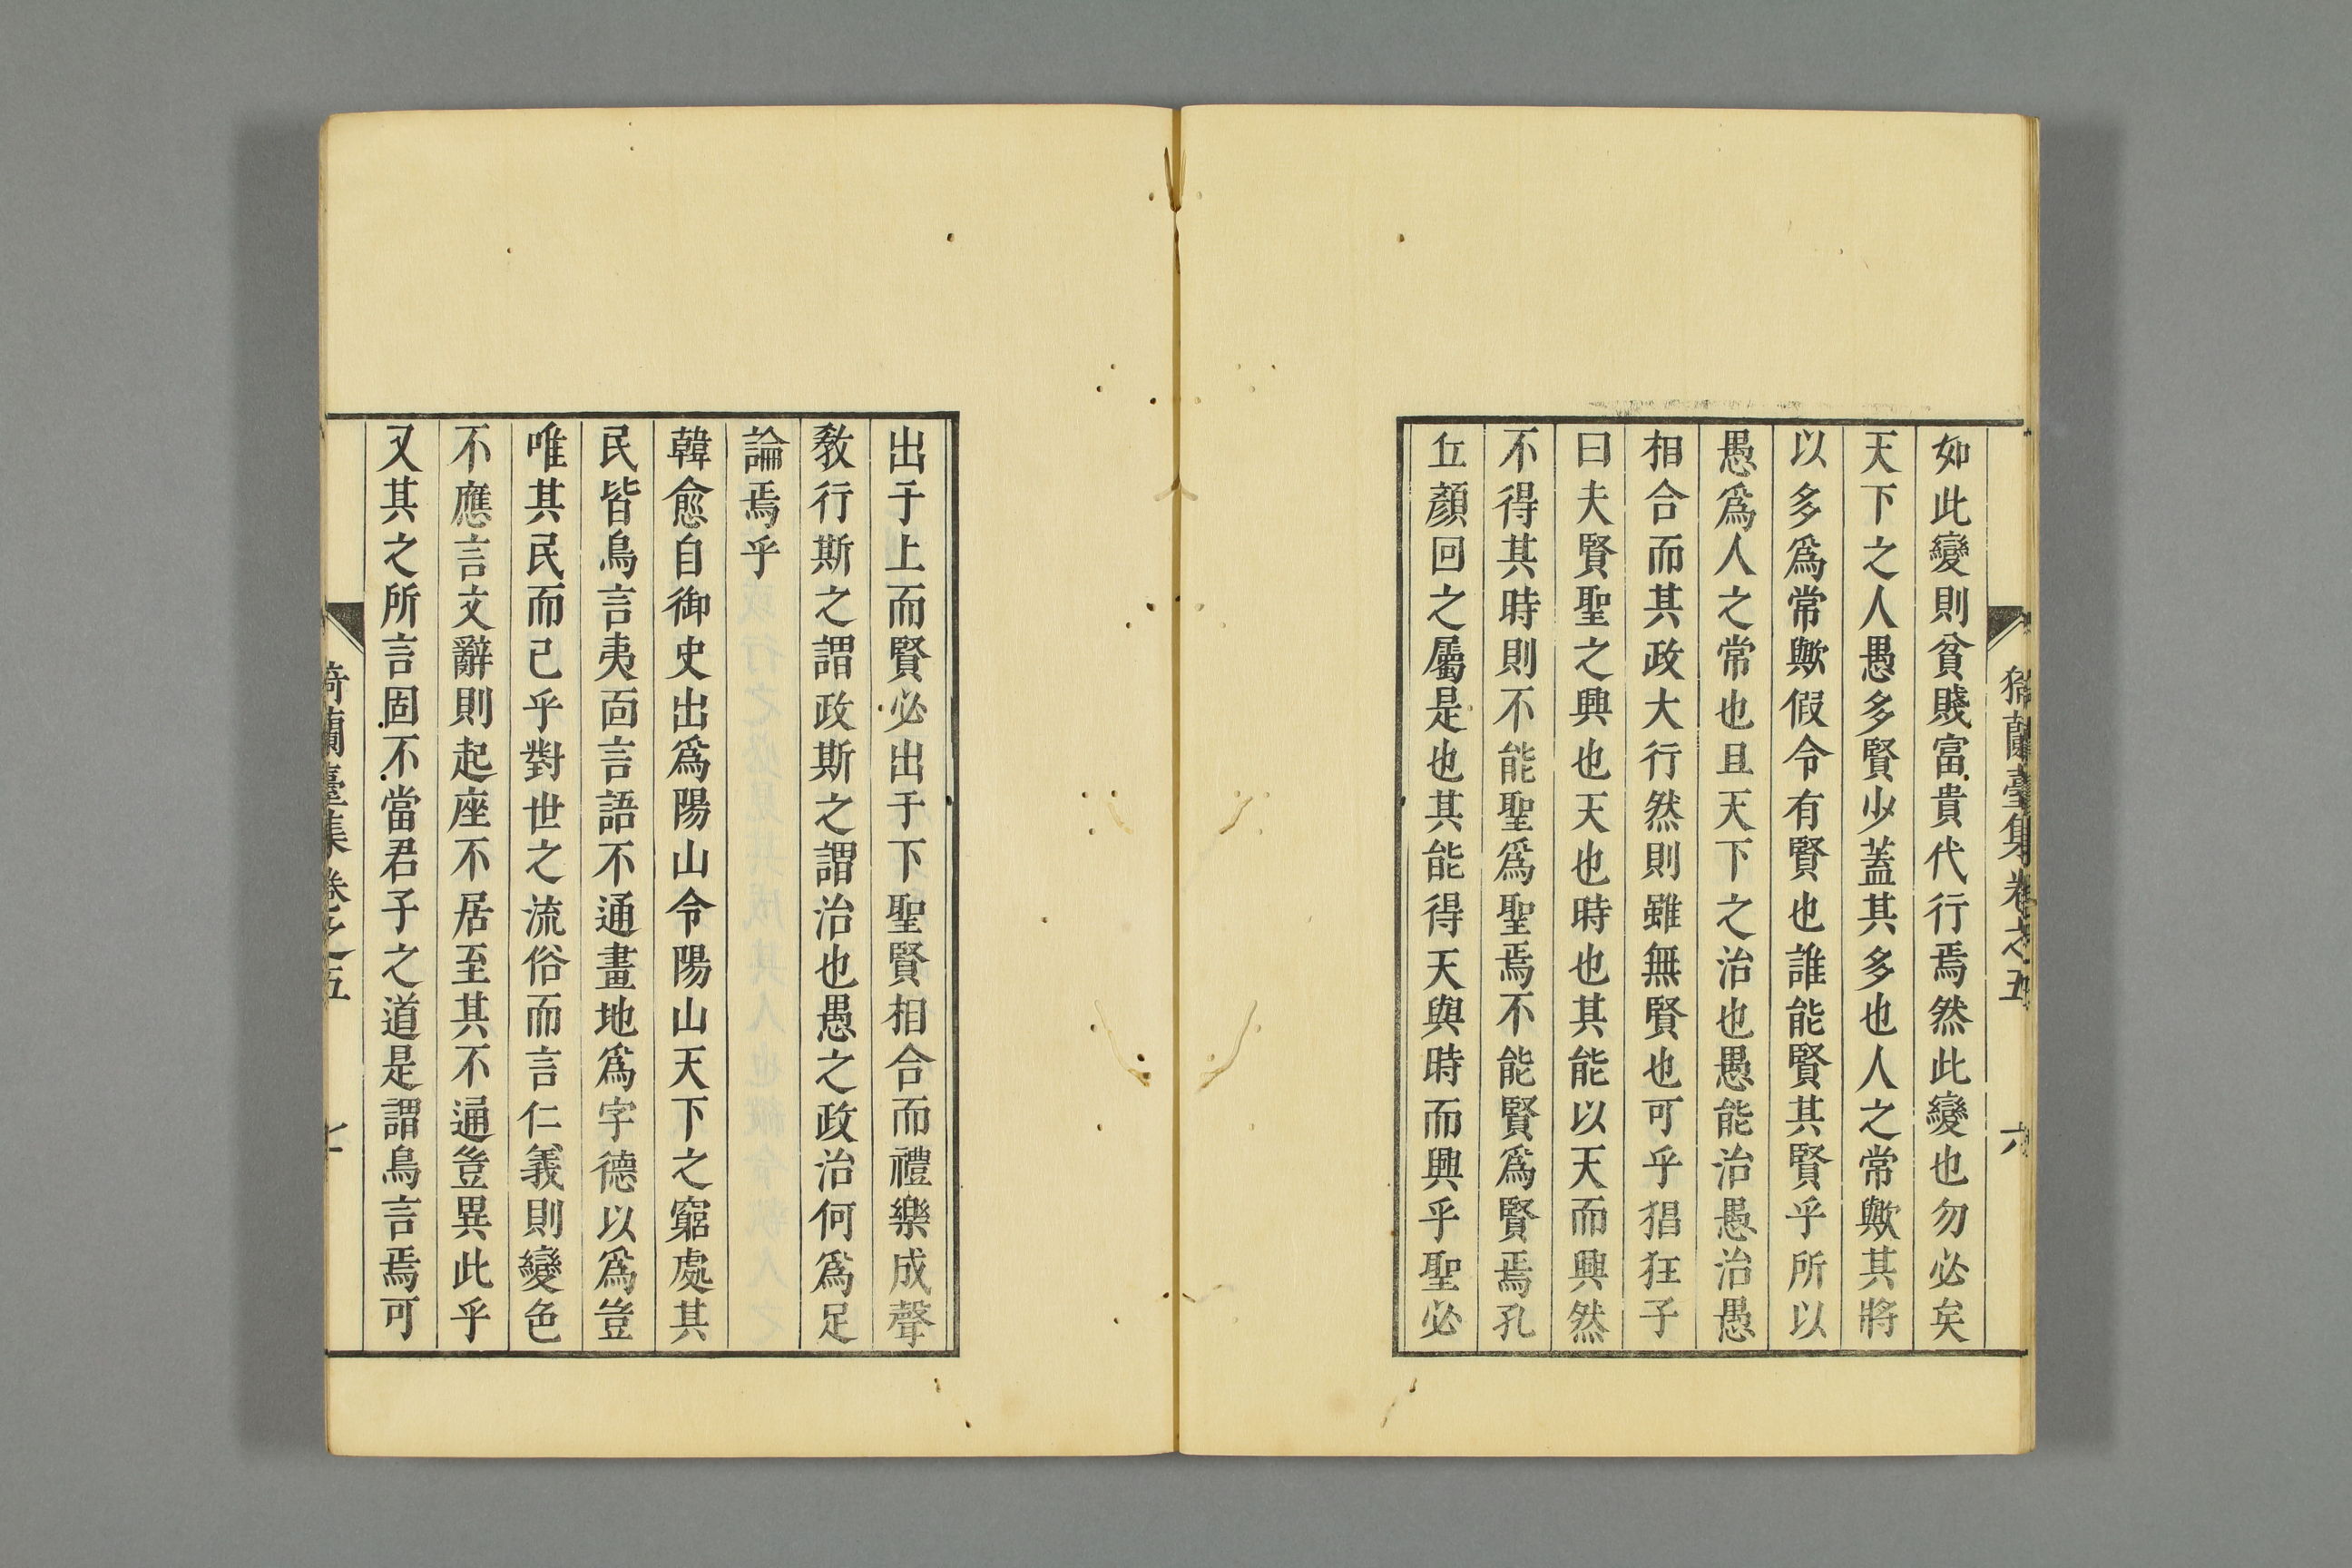 猗蘭臺集卷之五　六
如此變則貧賤富貴代行焉然此變也勿必矣
天下之人愚多賢少蓋其多也人之常歟其將
以多爲常歟假令有賢也誰能賢其賢乎所以
愚爲人之常也且天下之治也愚能治愚治愚
相合而其政大行然則雖無賢也可乎猖狂子
曰夫賢聖之興也天也時也其能以天而興然
不得其時則不能聖爲聖焉不能賢爲賢焉孔
丘顏回之屬是也其能得天與時而興乎聖必
出于上而賢必出于下聖賢相合而禮樂成聲
敎行斯之謂政斯之謂治也愚之政治何爲足
論焉乎
韓愈自御史出爲陽山令陽山天下之窮處其
民皆鳥言夷面言語不通畫地爲字德以爲豈
唯其民而已乎對世之流俗而言仁義則變色
不應言文辭則起座不居至其不通豈異此乎
又其之所言固不當君子之道是謂鳥言焉可
猗蘭臺集卷之五　七